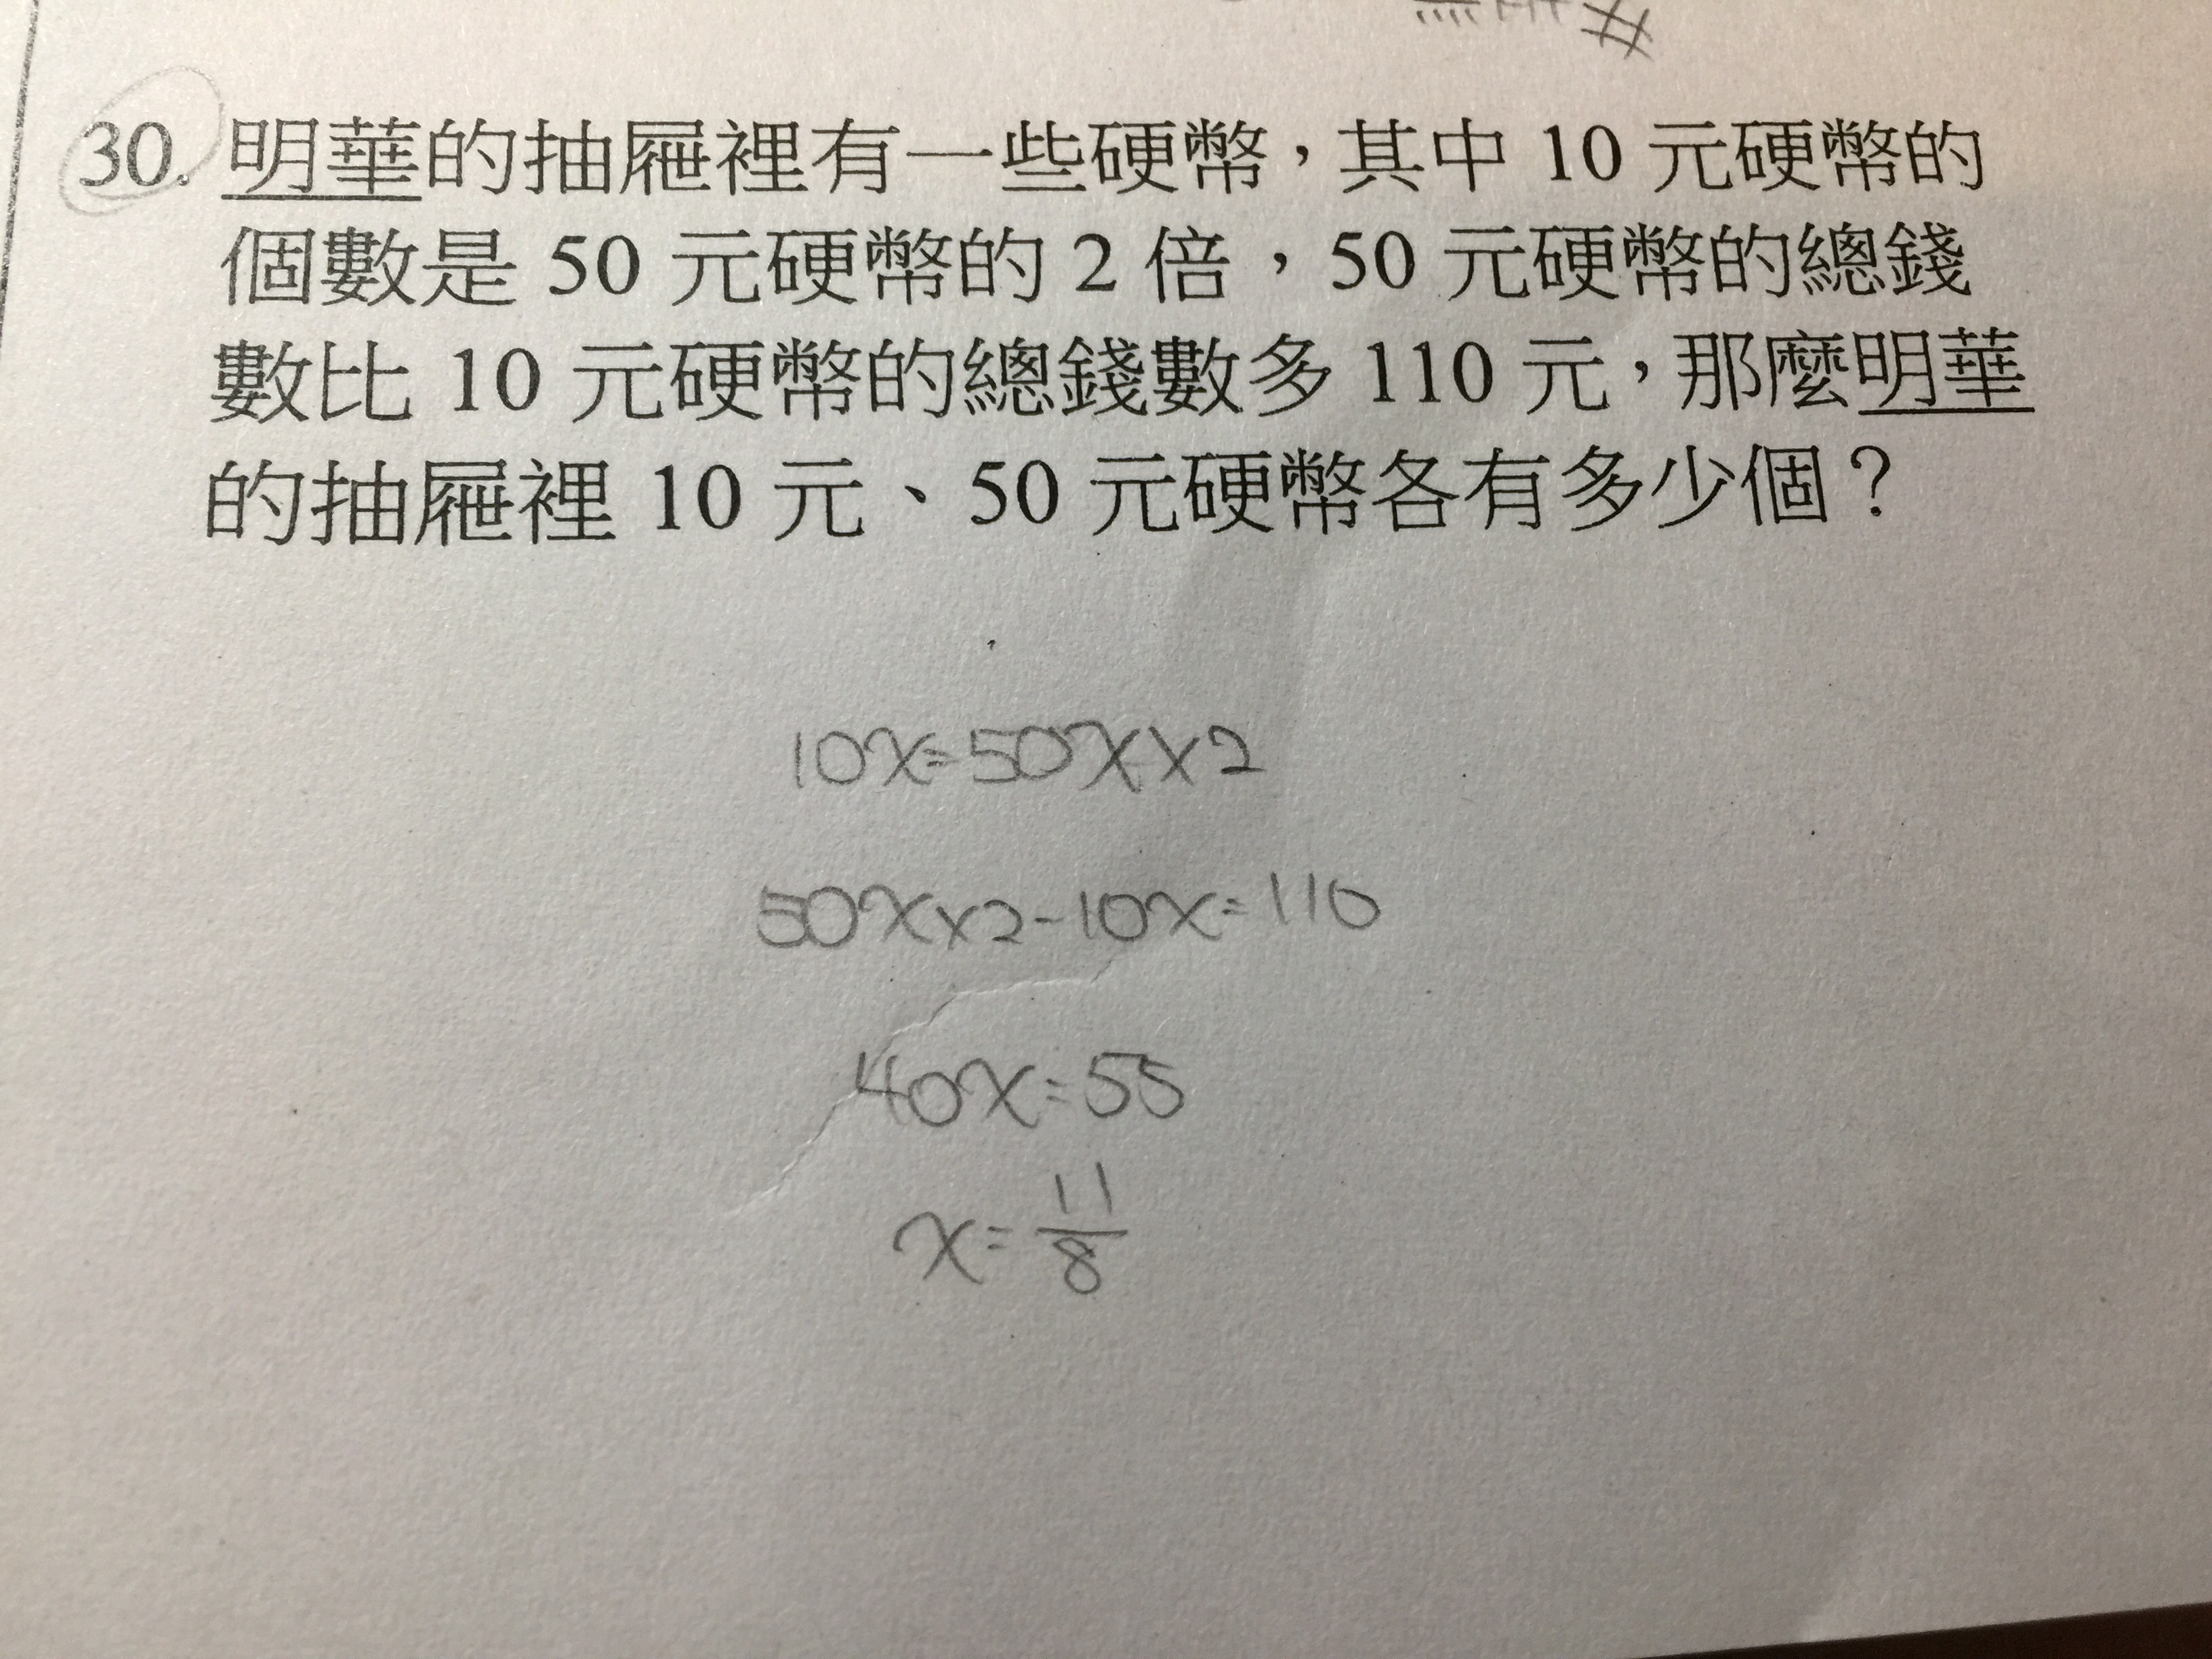 30. 明華的抽屜裡有一些硬幣，其中 10 元硬幣的
個數是 50 元硬幣的 2 倍，50 元硬幣的總錢
數比 10 元硬幣的總錢數多 110 元，那麼明華
的抽屜裡 10 元、50 元硬幣各有多少個？
10x=50x×2
50x×2-10x=110
40x=55
x=11/8